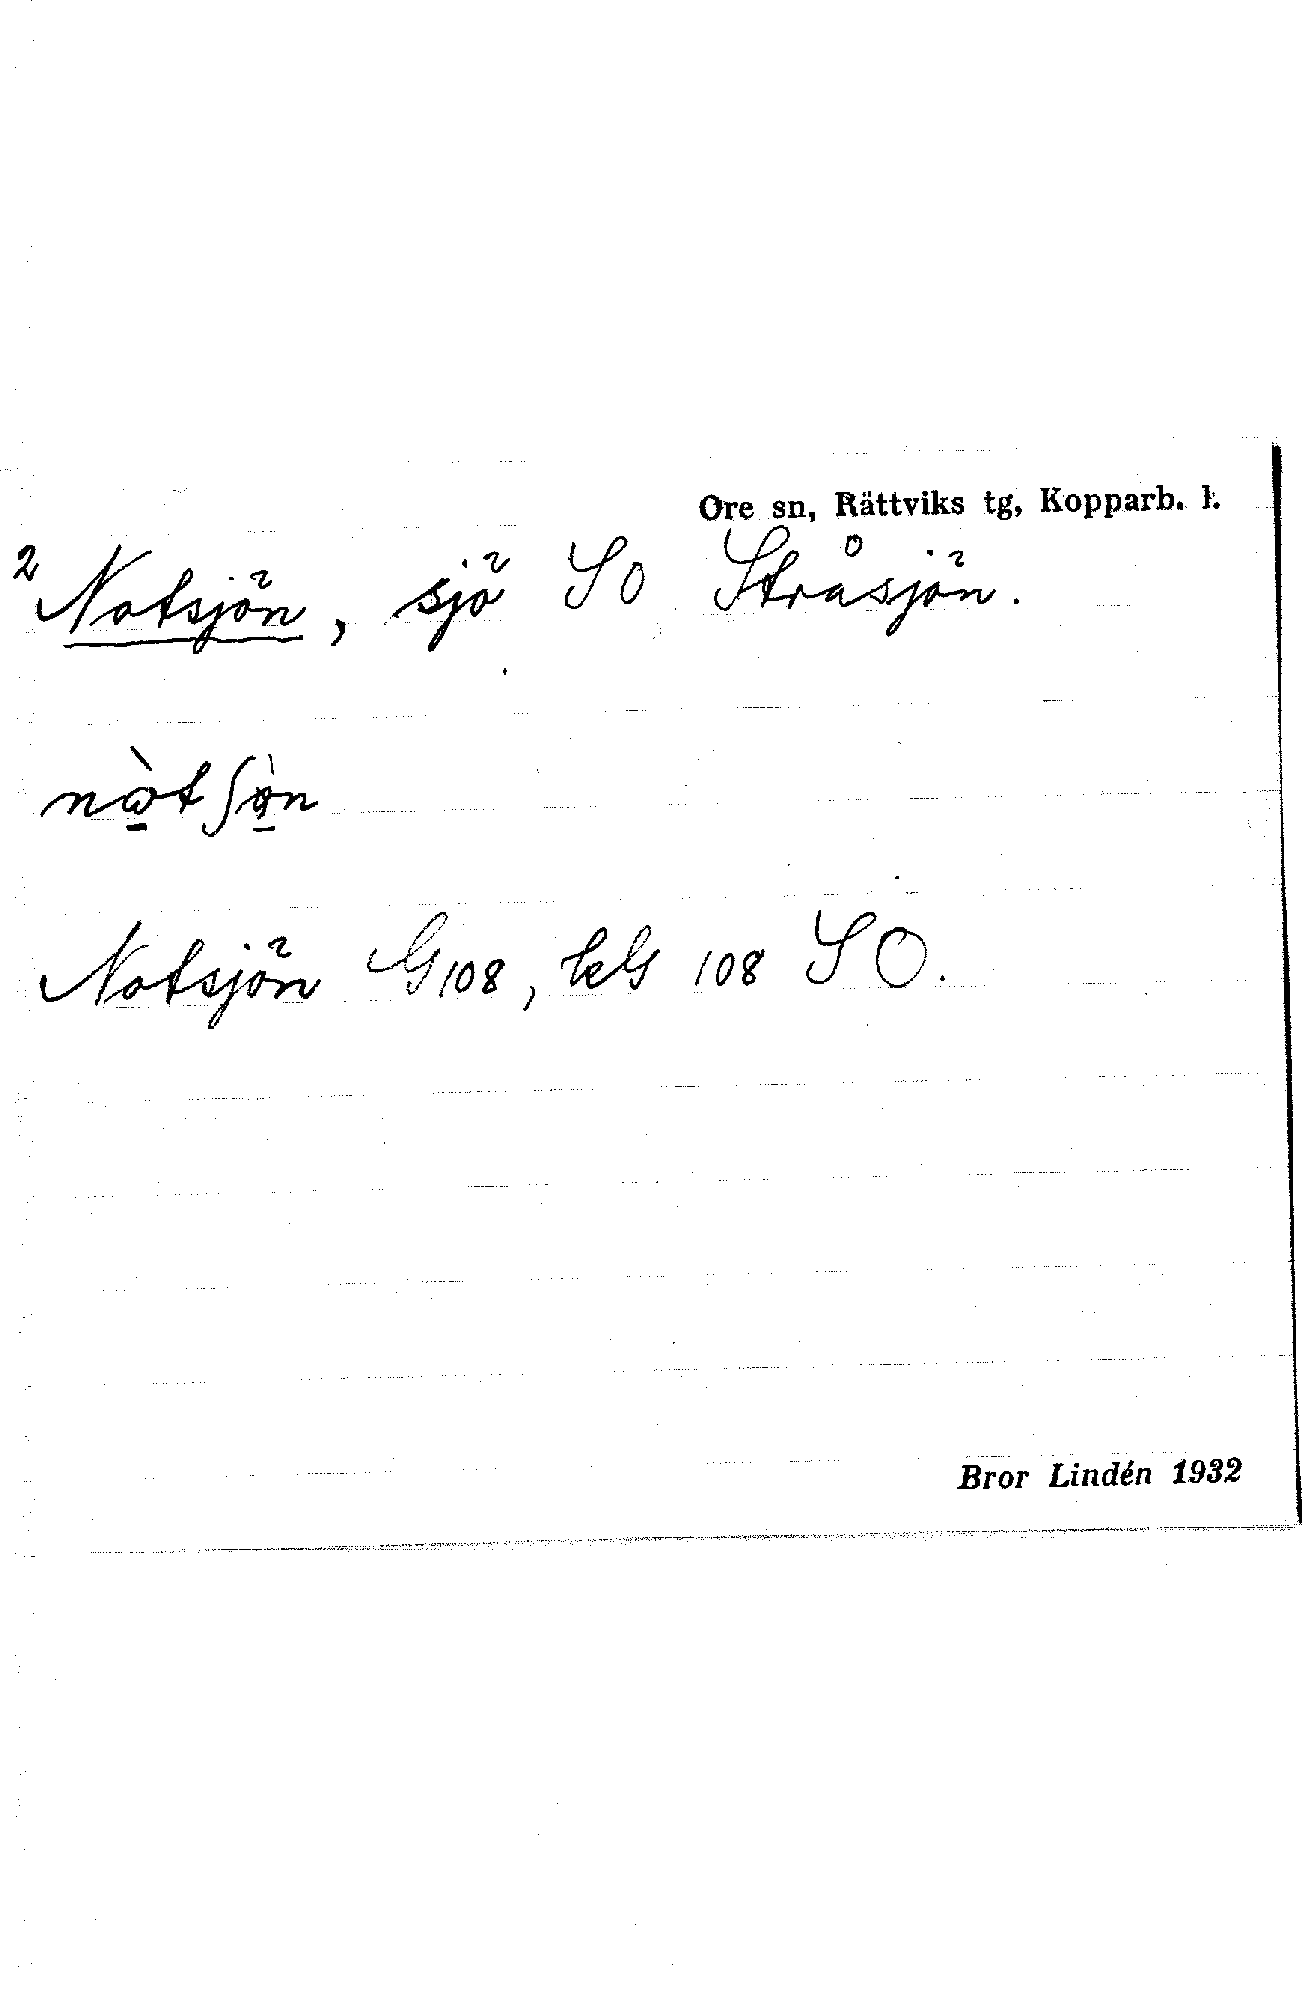 Ore sn, Rättviks tg, Kopparb. l.
2 Notsjön, sjö SO Stråsjön.
nòtʃòn
Notsjön G108, kG 108 SO.
Bror Lindén 1932